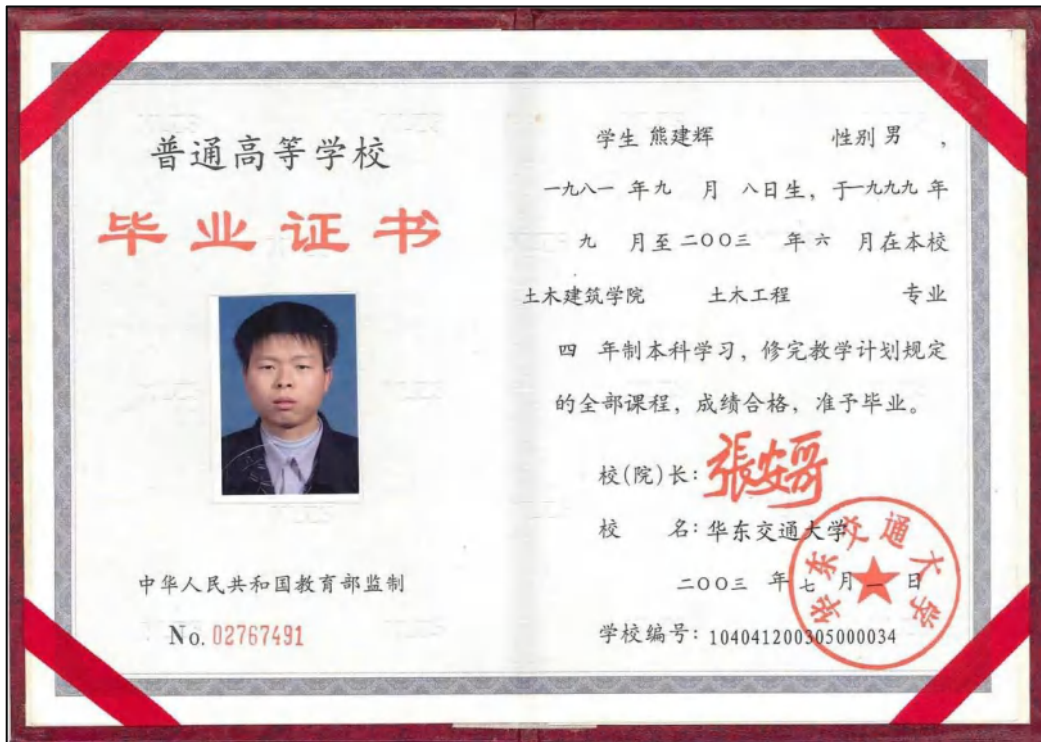 普通高等学校
毕业证书
中华人民共和国教育部监制
No. 02767491
学生 熊建辉 性别 男 ，
一九八一 年 九 月 八日生，于一九九九 年
九 月至 二〇〇三 年 六 月在本校
土木建筑学院 土木工程 专业
四 年制本科学习，修完教学计划规定
的全部课程，成绩合格，准予毕业。
校(院)长：
校 名：华东交通大学
二〇〇三 年 七 月 一 日
学校编号：104041200305000034
华东交通大学